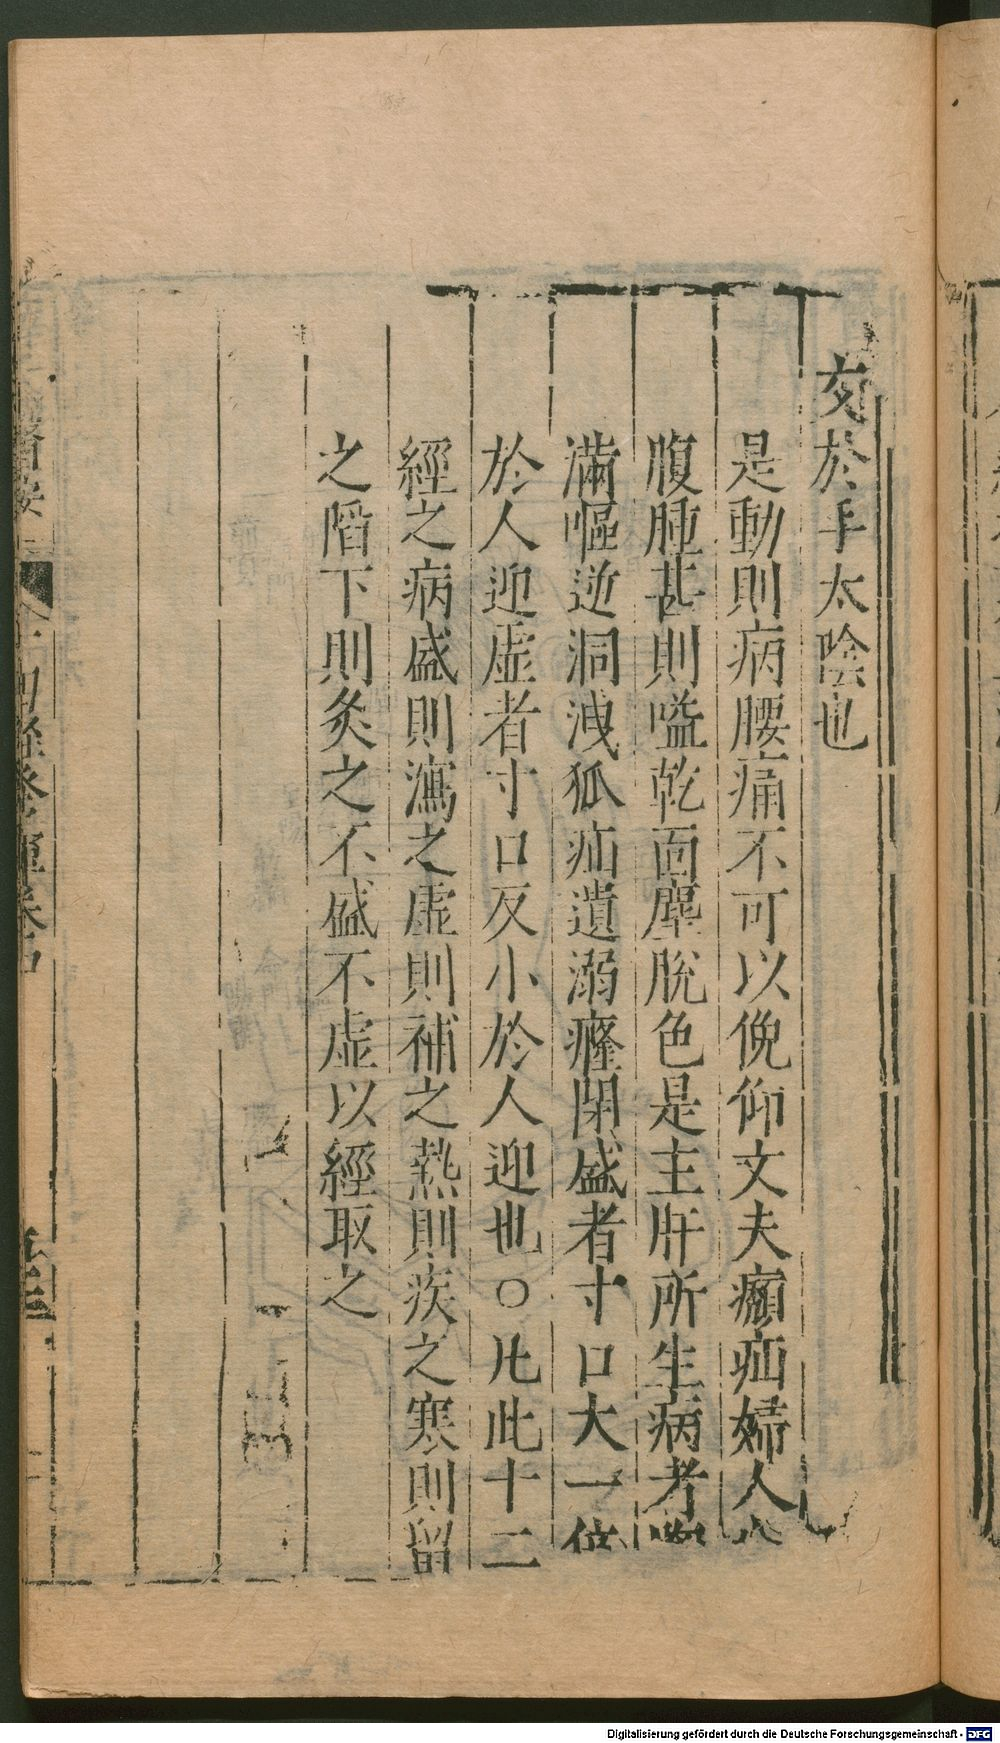 交於手太陰也
是動則病腰痛不可以俛仰丈夫㿗疝婦人小
腹腫甚則嗌乾面塵脫色是主肝所生病者胸
滿嘔逆洞洩狐疝遺溺癃閉盛者寸口大一倍
於人迎虛者寸口反小於人迎也○凡此十二
經之病盛則瀉之虛則補之熱則疾之寒則留
之陷下則灸之不盛不虛以經取之
十四經發揮卷中
Digitalisierung gefördert durch die Deutsche Forschungsgemeinschaft - DFG